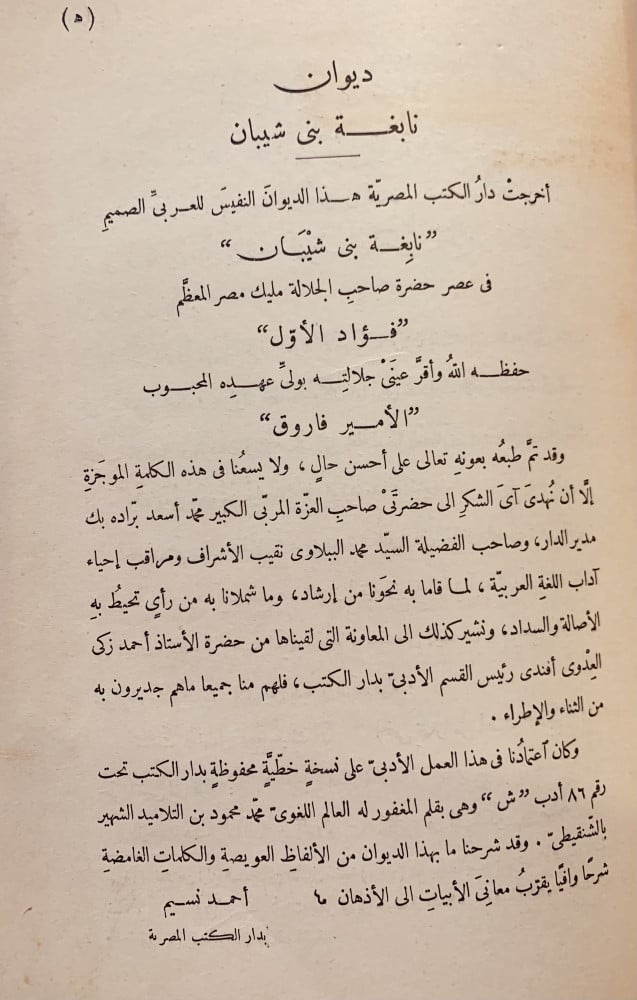 (ه)
ديوان
نابغة بنى شيبان
أخرجتْ دارُ الكتب المصريّة هذا الديوانَ النفيسَ للعربىِّ الصميمِ
”نابِغة بنى شَيْبَان“
فى عصر حضرة صاحبِ الجلالة مليك مصر المعظَّم
”فؤاد الأوّل“
حفظه اللهُ وأقرَّ عينَىْ جلالتِه بولىِّ عهدِه المحبوب
”الأمير فاروق“
وقد تمَّ طبعُه بعونهِ تعالى على أحسن حالٍ، ولا يسعُنا فى هذه الكلمةِ الموجَزةِ
إلَّا أن نُهدىَ آىَ الشكرِ الى حضرتَىْ صاحبِ العزّة المربّى الكبير محمّد أسعد برّاده بك
مدير الدار، وصاحب الفضيلة السيّد محمد الببلاوى نقيب الأشراف ومراقب إحياء
آداب اللغةِ العربيّة، لما قاما به نحوَنا من إرشاد، وما شملانا به من رأىٍ تحيطُ بهِ
الأصالة والسداد، ونشير كذلك الى المعاونة التى لقيناها من حضرة الأستاذ أحمد زكى
العِدْوى أفندى رئيس القسم الأدبىّ بدار الكتب، فلهم منا جميعا ماهم جديرون به
من الثناء والإطراء .
وكان ٱعتمادُنا فى هذا العمل الأدبىّ على نسخةٍ خطّيَّةٍ محفوظةٍ بدار الكتب تحت
رقم ٨٦ أدب ”ش“ وهى بقلم المغفور له العالم اللغوىّ محمّد محمود بن التلاميد الشهير
بالشّنقيطىّ . وقد شرحنا ما بهذا الديوان من الألفاظِ العويصةِ والكلماتِ الغامضةِ
شرحًا وافيًا يقرّبُ معانِىَ الأبياتِ الى الأذهان أحمد نسيم
بدار الكتب المصرية